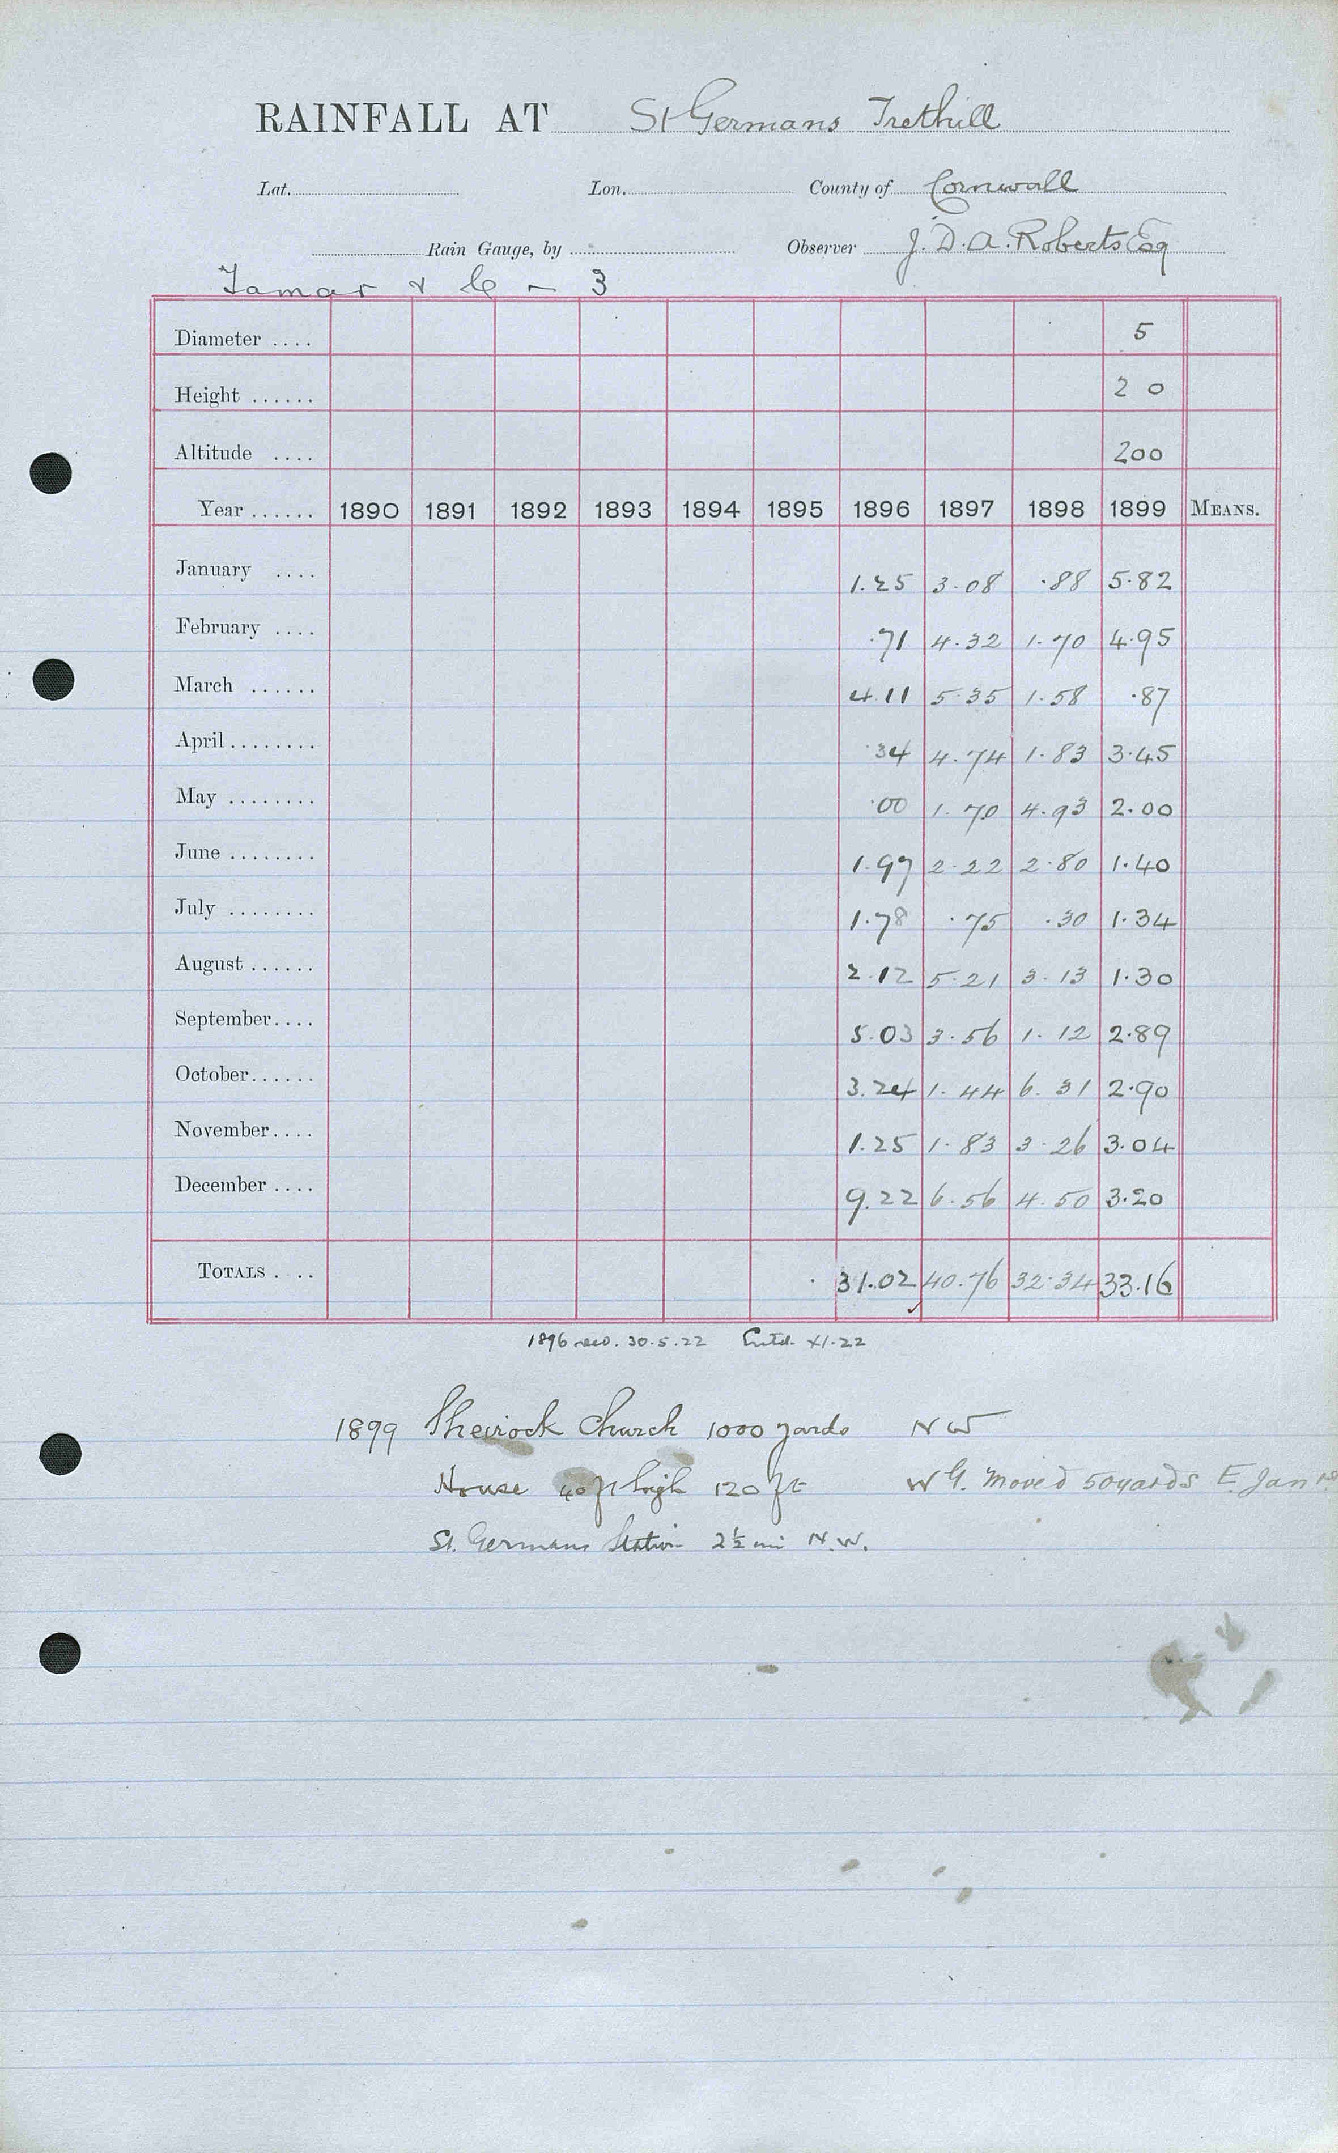 RAINFALL AT St Germans Trethill
Lat. Lon. County of Cornwall
Rain Gauge, by Observer J. D. A. Roberts Esq
Tamar & C - 3
Diameter .... 5
Height ...... 2 0
Altitude .... 200
Year ...... 1890 1891 1892 1893 1894 1895 1896 1897 1898 1899 MEANS.
January .... 1.25 3.08 .88 5.82
February .... .71 4.32 1.70 4.95
March ...... 4.11 5.35 1.58 .87
April ........ .34 4.74 1.83 3.45
May ........ .00 1.70 4.93 2.00
June ........ 1.97 2.22 2.80 1.40
July ........ 1.78 .75 .30 1.34
August ...... 2.12 5.21 3.13 1.30
September .... 5.03 3.56 1.12 2.89
October ...... 3.24 1.44 6.31 2.90
November .... 1.25 1.83 3.26 3.04
December .... 9.22 6.56 4.50 3.20
TOTALS .... 31.02 40.76 32.34 33.16
1896 recd. 30.5.22 Entd. XI.22
1899 Sheviock Church 1000 yards NW
House 40 ft high 120 ft W G. Moved 50 yards E. Jan
St. Germans Station 2½ mi N.W.